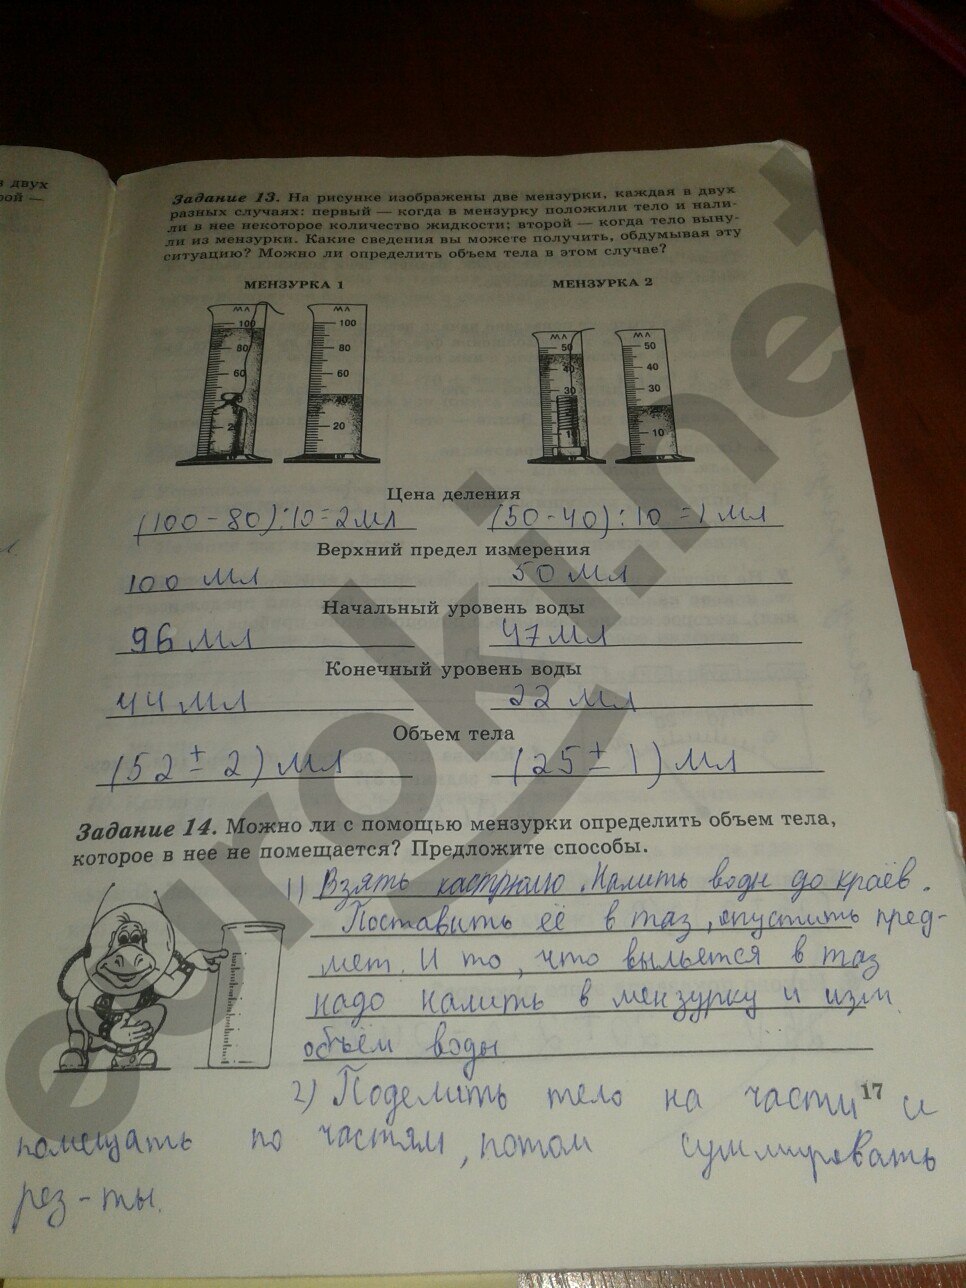 з двух
рой —
Задание 13. На рисунке изображены две мензурки, каждая в двух
разных случаях: первый — когда в мензурку положили тело и нали-
ли в нее некоторое количество жидкости; второй — когда тело выну-
ли из мензурки. Какие сведения вы можете получить, обдумывая эту
ситуацию? Можно ли определить объем тела в этом случае?
МЕНЗУРКА 1 МЕНЗУРКА 2
мл мл мл мл
100 100 50 50
80 80 40 40
60 60 30 30
40 20
20 10
Цена деления
(100-80):10=2мл (50-40):10=1мл
Верхний предел измерения
100 мл 50 мл
Начальный уровень воды
96 мл 47 мл
Конечный уровень воды
44 мл 22 мл
Объем тела
(52±2) мл (25±1) мл
Задание 14. Можно ли с помощью мензурки определить объем тела,
которое в нее не помещается? Предложите способы.
1) Взять кастрюлю. Налить воды до краёв.
Поставить её в таз, опустить пред-
мет. И то, что выльется в таз
надо налить в мензурку и изм
объём воды
17
2) Поделить тело на части и
помещать по частям, потом суммировать
рез-ты.
eurokі.net